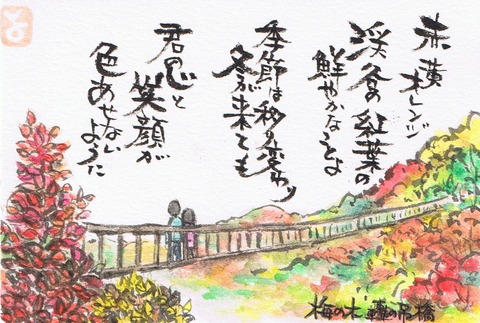 赤黄オレンジ
渓谷の紅葉の
鮮やかなことよ
季節は移り変わり
冬が来ても
君の心と
笑顔が
色あせない
ように
梅の木轟の吊橋